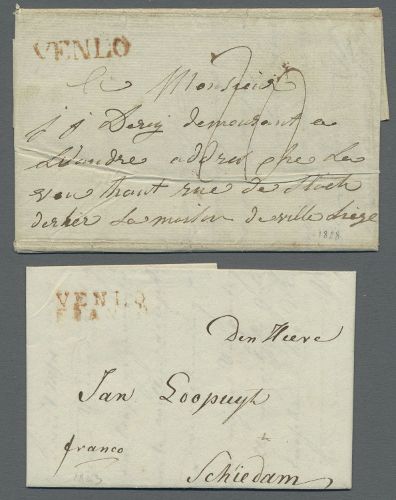 VENLO
A Monsieur
J J Deruy demeurant a
Londre addres che la
veu hant rue de Stock
derier La maison de ville Liege
1828
VENLO
FRANCO
Den Heere
Jan Loopuyt
franco
Schiedam